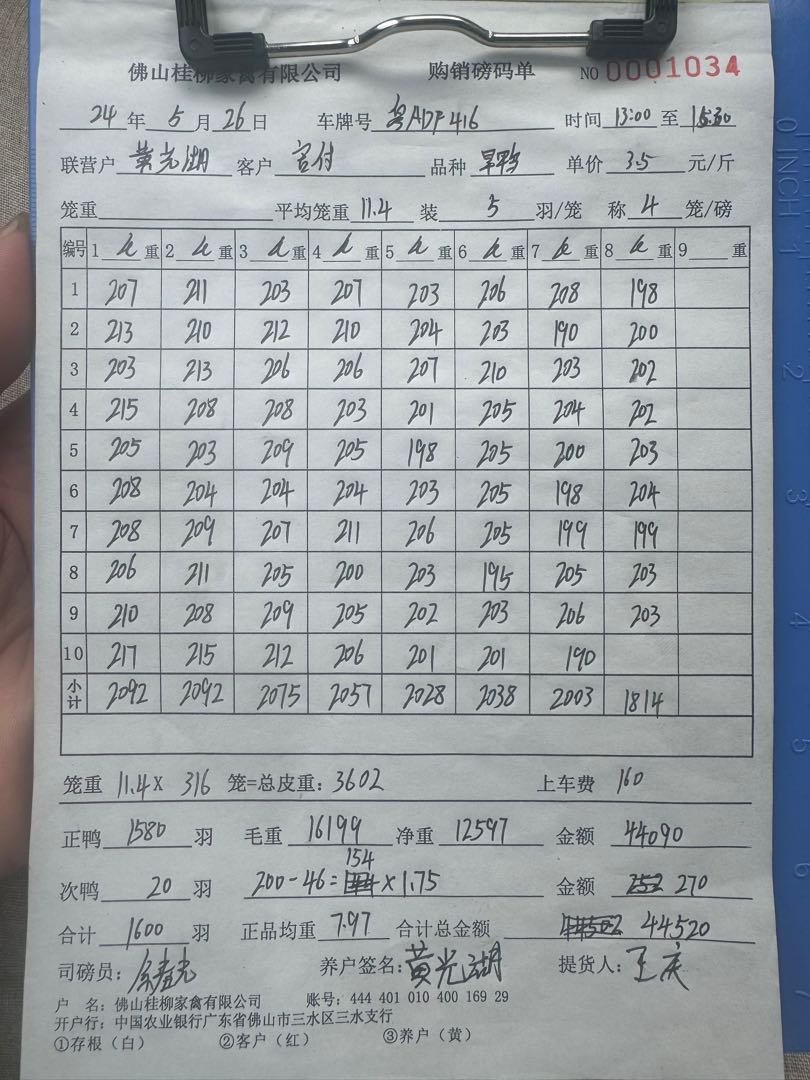 佛山桂柳家禽有限公司 购销磅码单 NO 0001034
24 年 5 月 26 日 车牌号 粤ADF416 时间 13:00 至 15:30
联营户 黄光湖 客户 客付 品种 旱鸭 单价 3.5 元/斤
笼重 平均笼重 11.4 装 5 羽/笼 称 4 笼/磅
编号 1 重 2 重 3 重 4 重 5 重 6 重 7 重 8 重 9 重
1 207 211 203 207 203 206 208 198
2 213 210 212 210 204 203 190 200
3 203 213 206 206 207 210 203 202
4 215 208 208 203 201 205 204 202
5 205 203 209 205 198 205 200 203
6 208 204 204 204 203 205 198 204
7 208 209 207 211 206 205 199 199
8 206 211 205 200 203 195 205 203
9 210 208 209 205 202 203 206 203
10 217 215 212 206 201 201 190
小计 2092 2092 2075 2057 2028 2038 2003 1814
笼重 11.4 X 316 笼=总皮重: 3602 上车费 160
正鸭 1580 羽 毛重 16199 净重 12597 金额 44090
次鸭 20 羽 200-46= 154 ×1.75 金额 252 270
合计 1600 羽 正品均重 7.97 合计总金额 44520
司磅员: 养户签名: 黄光湖 提货人: 王庆
户 名: 佛山桂柳家禽有限公司 账号: 444 401 010 400 169 29
开户行: 中国农业银行广东省佛山市三水区三水支行
①存根（白） ②客户（红） ③养户（黄）
0 INCH 1
2
3
4
5
6
7